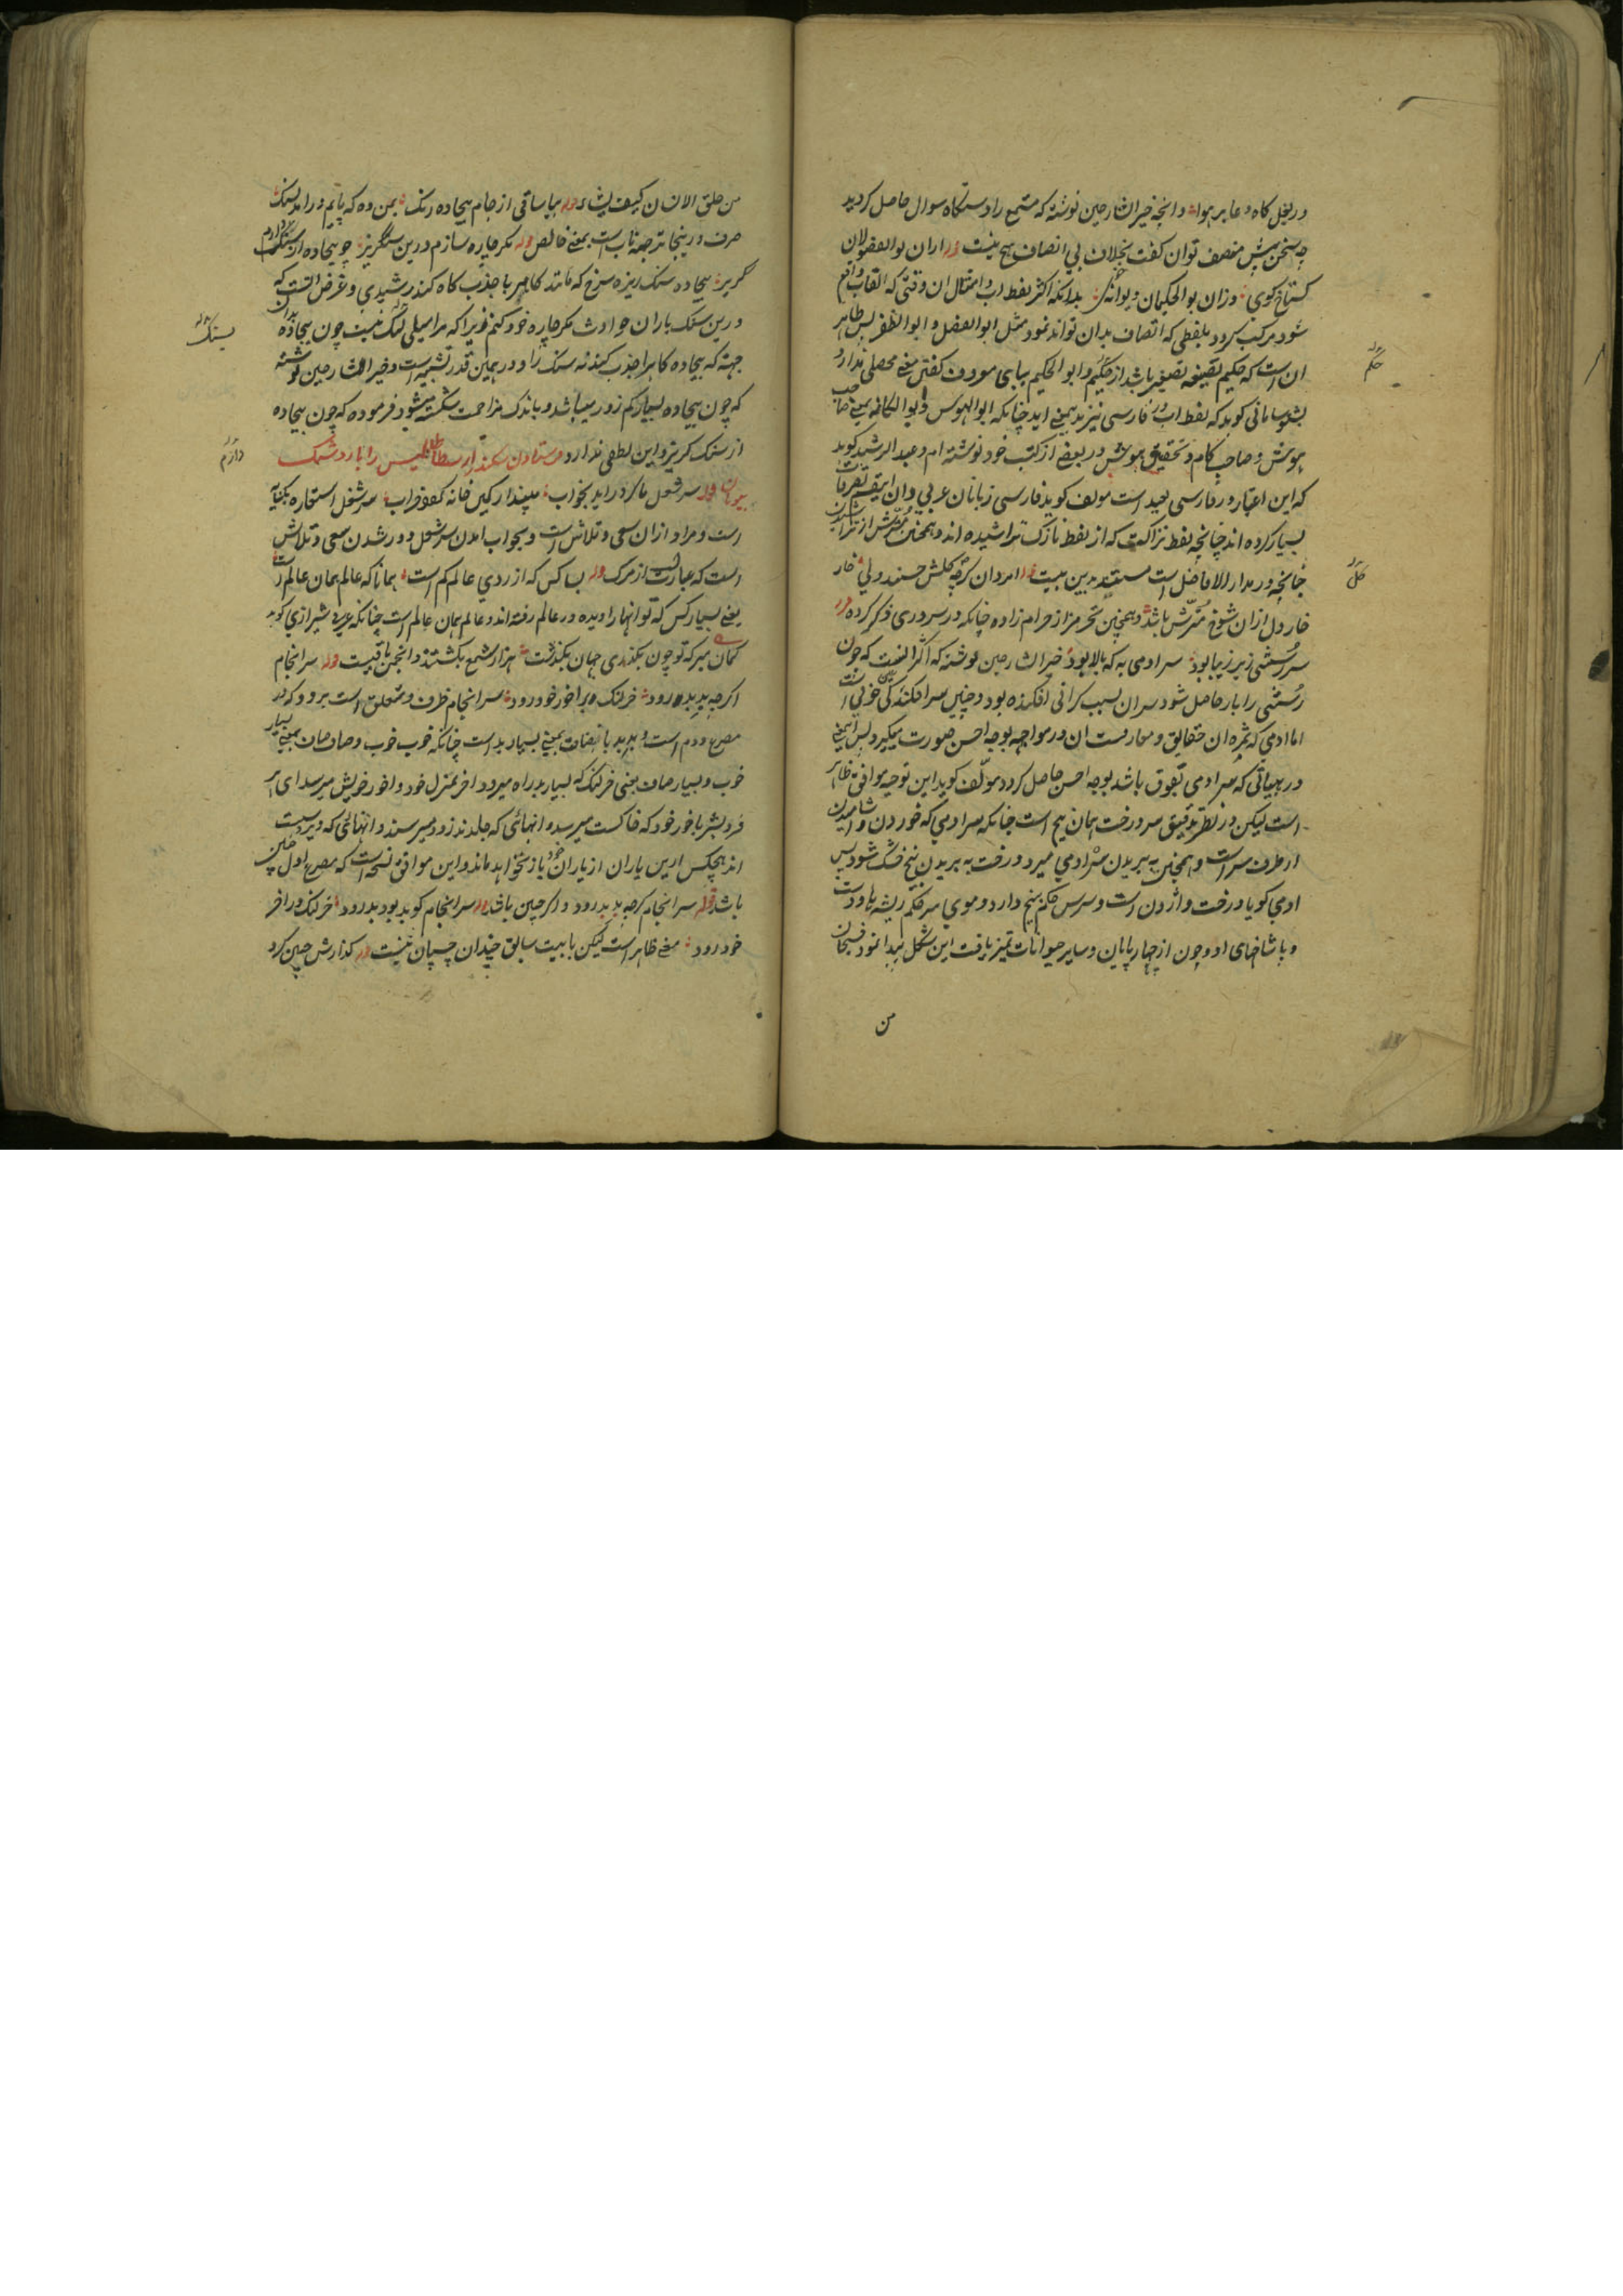 در بغل کاه و عابر هوا و انچه خیر الشارحین نوشته که مستمع را دستکاه سوال حاصل کردید
چه سخن پیش منصف توان کفت بخلاف بی انصاف هیچ نیست قوله از ان بوالفضولان
کستاخ کوی وزان بوالحکیمان دیوانه خوی بدانکه اکثر لفظ اب و امثال ان وقتی که القاب واقع
شود مرکب کردد بلفظی که اتصاف بدان تواند نمود مثل ابوالفضل و ابوالظفر پس ظاهر
ان است که حکیم بصیغه تصغیر باشد از حکیم و ابوالحکیم بیای معروف کفتن معنی محصلی ندارد
سامانی کوید که لفظ اب در فارسی نیز بدین معنی اید چنانکه ابوالهوس و ابوالکامه بمعنی صاحب
هوش و صاحب کام و تحقیق بوالهوش در بعضی از کتب خود نوشته ام و عبدالرشید کوید
که این اعتبار در فارسی بعید است مولف کوید فارسی زبانان عربی دان این تصرفات
بسیار کرده اند چنانچه لفظ نزاکت که از لفظ نازک تراشیده اند و همچنین مترش از تراشیدن
چنانچه در مدار الافاضل است مستند بدین بیت امردان کرچه کلش حسنند ولی خار
خار دل از ان شوخ مترش باشد و همچنین محرمز از حرام زاده چنانکه در سروری ذکر کرده قوله
سر رستنی زیر زیبا بود سر ادمی به که بالا بود خیر الشارحین نوشته که اکثر انست که چون
رستنی را بار حاصل شود سر ان بسبب کرانی افکنده بود و چنین سر افکندکی خوبی است
اما ادمی که ثمره ان حقایق و معارفست ان در مواجهه بوجه احسن صورت میکیرد پس این معنی
در هیاتی که سر ادمی بفوق باشد بوجه احسن حاصل کردد مولف کوید این توجیه موافق ظاهر
است لیکن در نظر تدقیق سر درخت همان بیخ است چنانکه سر ادمی که خوردن و اشامیدن
از طرف سر است و همچنین به بریدن سر ادمی میرد و درخت به بریدن بیخ خشک شود پس
ادمی کویا درخت واژون است و سرش حکم بیخ دارد و موی سر حکم ریشه ها و دست
و پا شاخهای او و چون از چهارپایان و سایر حیوانات تمیز یافت این شکل پیدا نمود فسبحان
من
حکم
کل
من خلق الانسان کیف یشاء قوله بیا ساقی از جام بیجاده رنک بمن ده که پایم درامد بسنک
صرف در اینجا ترجمه ناب است بمعنی خالص قوله مکر چاره سازم درین سنکریز چو بیجاده از سنک دارم
کریز بیجاده سنک ریزه سرخ که مانند کاهربا جذب کاه کند رشیدی و غرض انست که
درین سنک باران حوادث مکر چاره خود کنم زیرا که مرا میلی بسنک نیست چون بیجاده بدان
جهته که بیجاده کاه را جذب کند نه سنک را و در همین قدر تشبیه است و خیر الشارحین نوشته
که چون بیجاده بسیار کم زور میباشد و باندک مزاحمت شکسته میشود فرموده که چون بیجاده
از سنک کریز و این لطفی ندارد فرستادن سکندر ارسطاطالیس را با روشنک
بیونان قوله سر شغل ما کر دراید بخواب مپندار کین خانه کردد خراب سر شغل استعاره بکنایه
است و مراد از ان سعی و تلاش است و بخواب امدن سر شغل دور شدن سعی و تلاش
است که عبارتست از مرک قوله بسا کس که از روی عالم کم است همانا که عالم همان عالم است
یعنی بسیار کس که تو انها را دیده در عالم رفته اند و عالم همان عالم است چنانکه عرفی شیرازی کوید
کمان مبر که تو چون بکذری جهان بکذشت هزار شمع بکشتند و انجمن باقیست قوله سر انجام
اکرچه بد بد رود خر لنک هم باخور خود رود سر انجام ظرف و متعلق است برود که در
مصرع دوم است و بد بد باضافت بمعنی بسیار بد است چنانکه خوب خوب و صاف صاف بمعنی بسیار
خوب و بسیار صاف یعنی خر لنک که بسیار بد راه میرود اخر بمنزل خود و اخور خویش میرسد ای هر
فرد بشر باخور خود که خاکست میرسد و انهائی که جلدند زود میرسند و انهائی که دیر دیر است
اند هیچکس ازین یاران از یاران خود باز نخواهد ماند و این موافق نسخه است که مصرع اول چنین
باشد قوله سر انجام کرچه بد بد رود و اکر چنین باشد قوله سر انجام کوید بود بدرود خر لنک در اخر
خود رود معنی ظاهر است لیکن با بیت سابق چندان چسپان نیست قوله کذارش چنین کرد
بسنک
دارم